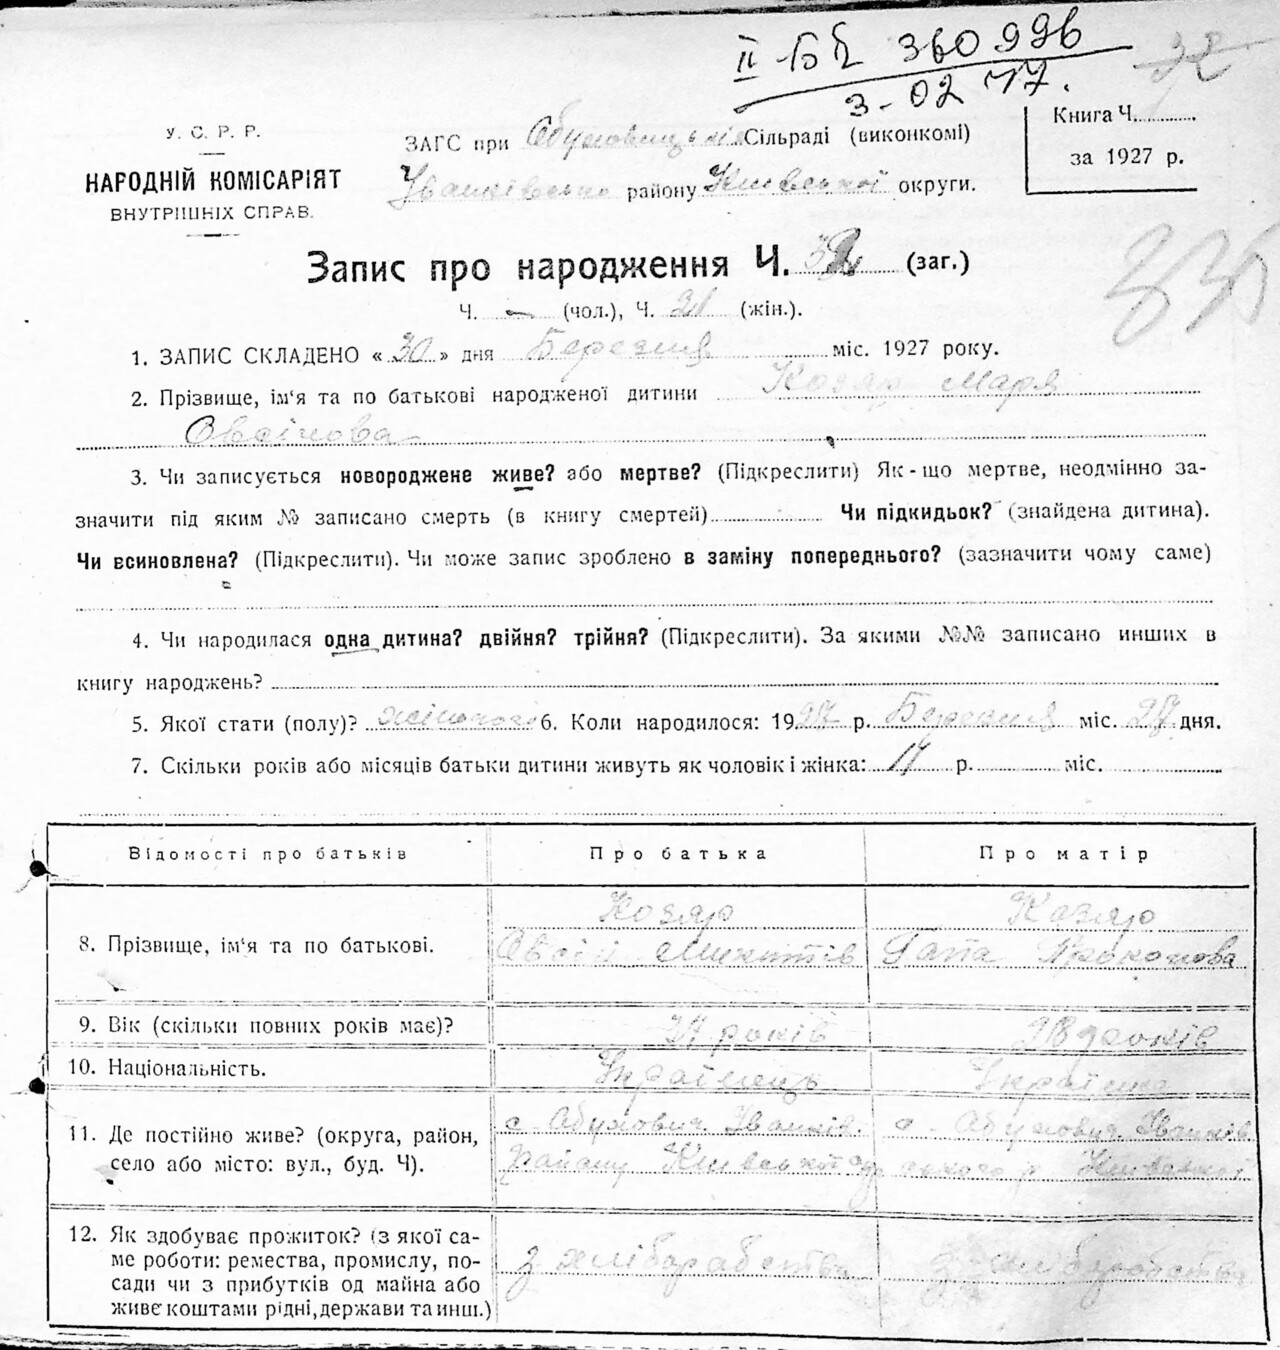 II БЕ 360996
3-02 77.
32
У. С. Р. Р.
НАРОДНІЙ КОМІСАРІЯТ
ВНУТРІШНІХ СПРАВ.
ЗАГС при Обуховицькій Сільраді (виконкомі)
Іванківсько району Київської округи.
Книга Ч.
за 1927 р.
Запис про народження Ч. (заг.)
Ч. — (чол.), Ч. 21 (жін.).
1. ЗАПИС СКЛАДЕНО «30» дня Березня міс. 1927 року.
2. Прізвище, ім'я та по батькові народженої дитини Козяр Марія
Овсійова
3. Чи записується новороджене живе? або мертве? (Підкреслити) Як-що мертве, неодмінно за-
значити під яким № записано смерть (в книгу смертей) Чи підкидьок? (знайдена дитина).
Чи всиновлена? (Підкреслити). Чи може запис зроблено в заміну попереднього? (зазначити чому саме)
4. Чи народилася одна дитина? двійня? трійня? (Підкреслити). За якими №№ записано инших в
книгу народжень?
5. Якої стати (полу)? жіночого 6. Коли народилося: 1927 р. Березня міс. 27 дня.
7. Скільки років або місяців батьки дитини живуть як чоловік і жінка: 11 р. міс.
Відомості про батьків Про батька Про матір
8. Прізвище, ім'я та по батькові. Козяр Козяр
Овсій Микитів Гапа Прокопова
9. Вік (скільки повних років має)? років років
10. Національність. Українець Українка
11. Де постійно живе? (округа, район, с. Обухович. Іванків. с. Обухович Іванків
село або місто: вул., буд. Ч). Району Київської ського р. Київської
12. Як здобуває прожиток? (з якої са-
ме роботи: ремества, промислу, по- з хліборобства з хліборобства
сади чи з прибутків од майна або
живе коштами рідні, держави та инш.)